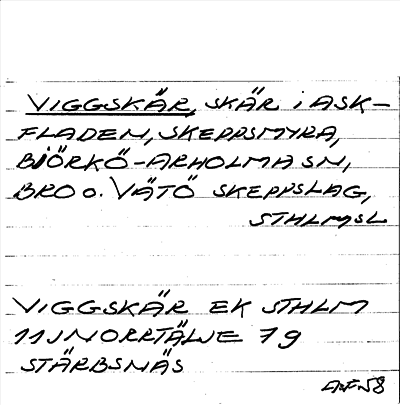 VIGGSKÄR, SKÄR i ASK-
FLADEN, SKEPPSMYRA,
BJÖRKÖ-ARHOLMA SN,
BRO O. VÄTÖ SKEPPSLAG,
STHLMSL
VIGGSKÄR EK STHLM
11J NORRTÄLJE 7 g
STÄRBSNÄS